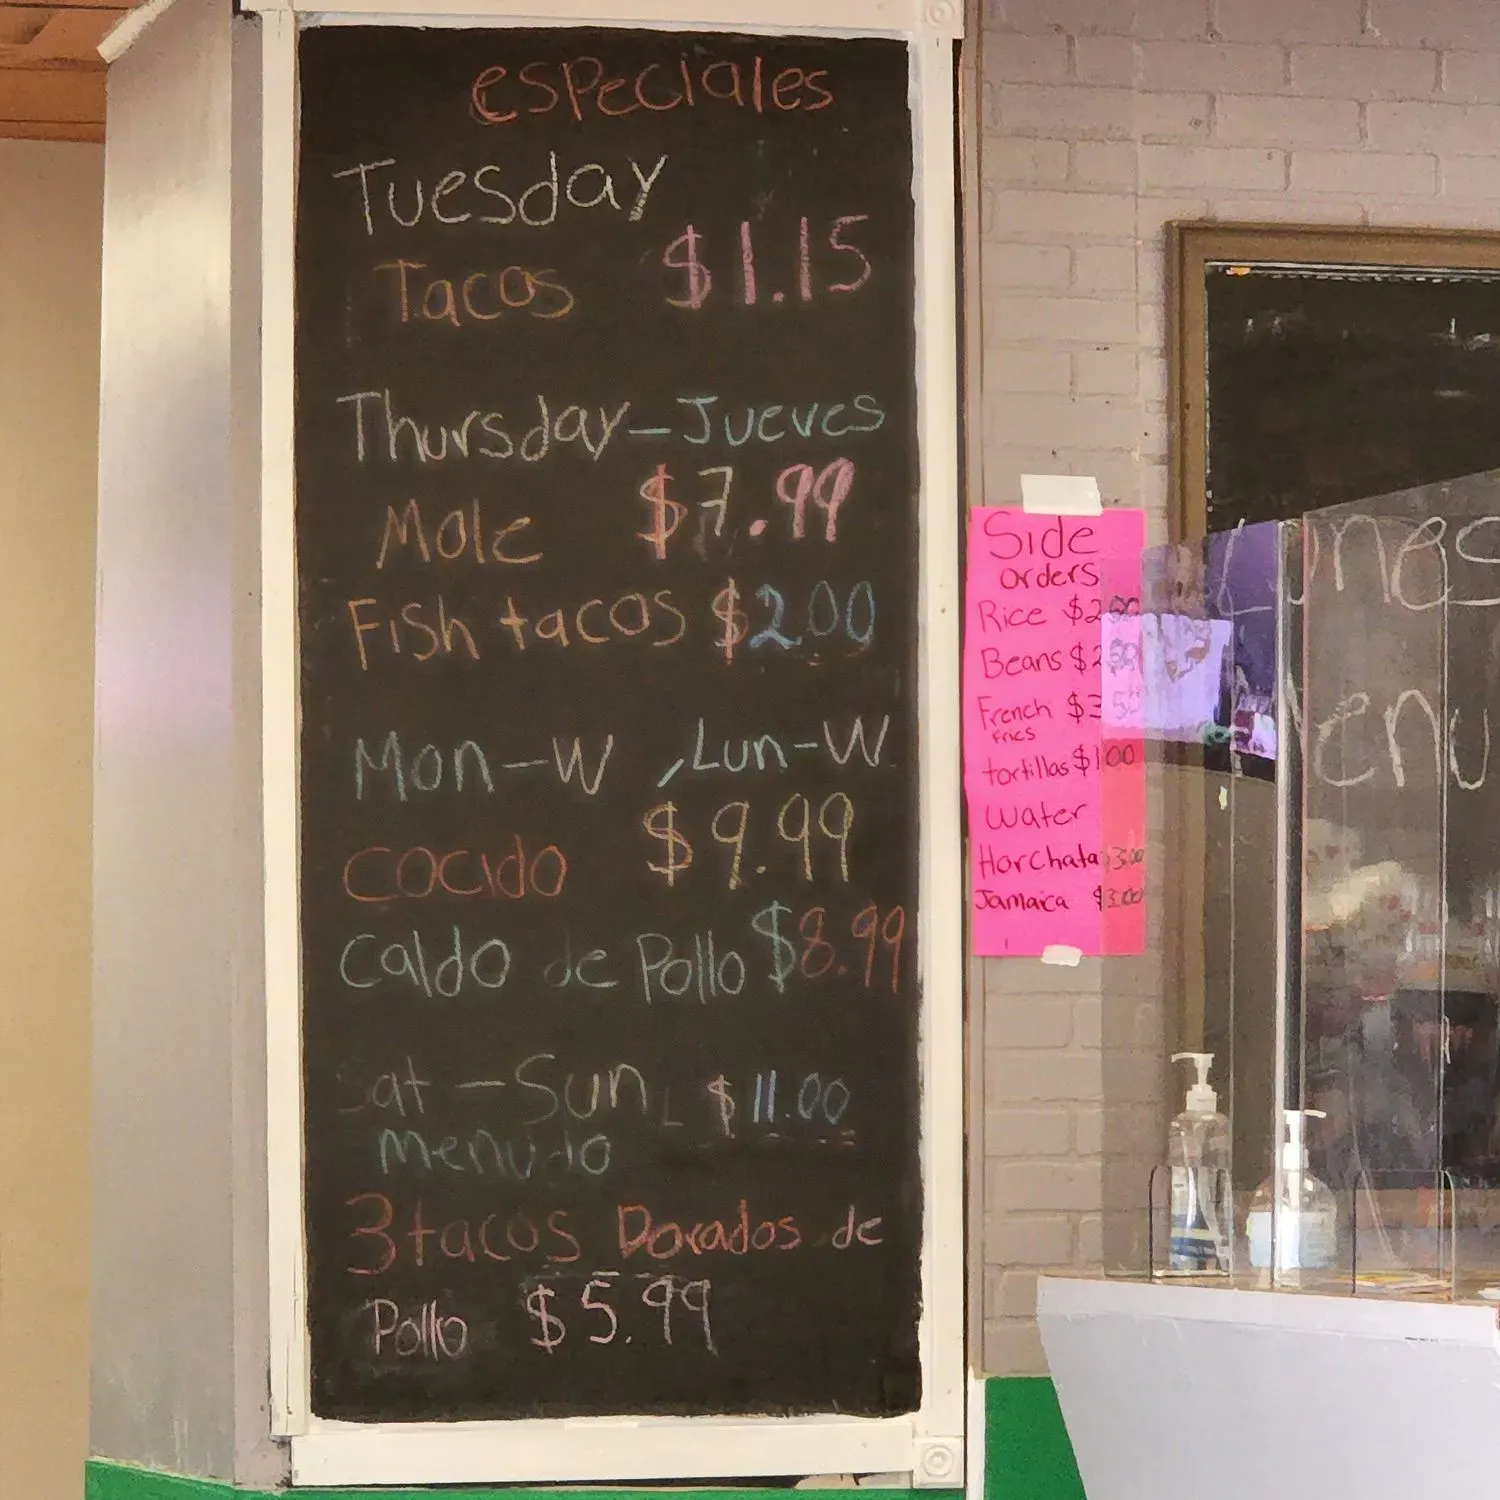 especiales
Tuesday
Tacos $1.15
Thursday-Jueves
Mole $7.99
Fish tacos $2.00
Mon-W , Lun-W
cocido $9.99
Caldo de Pollo $8.99
Sat-Sun $11.00
menudo
3 tacos Dorados de
Pollo $5.99
Side
orders
Rice
Beans
French
fries
tortillas $1.00
water
Horchata $3.00
Jamaica $3.00